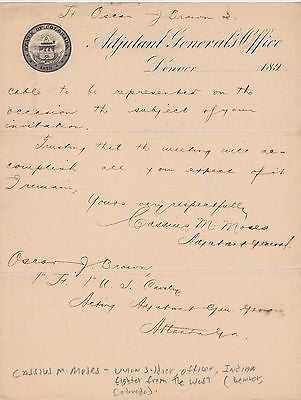 Lt Oscar J Brown 2.
Adjutant General's Office
Denver 189
cable to be represented on the
occasion the subject of your
invitation.
Trusting that the meeting will ac-
complish all you expect of it
I remain,
Yours very respectfully
Cassius M Moses
Adjutant General
Oscar J. Brown
1st Lt. 1st U. S. Cavalry
Acting Adjutant Gen.
Atlanta Ga.
CASSIUS M. MOSES - UNION SOLDIER, OFFICER, INDIAN
FIGHTER FROM THE WEST (DENVER,
COLORADO).